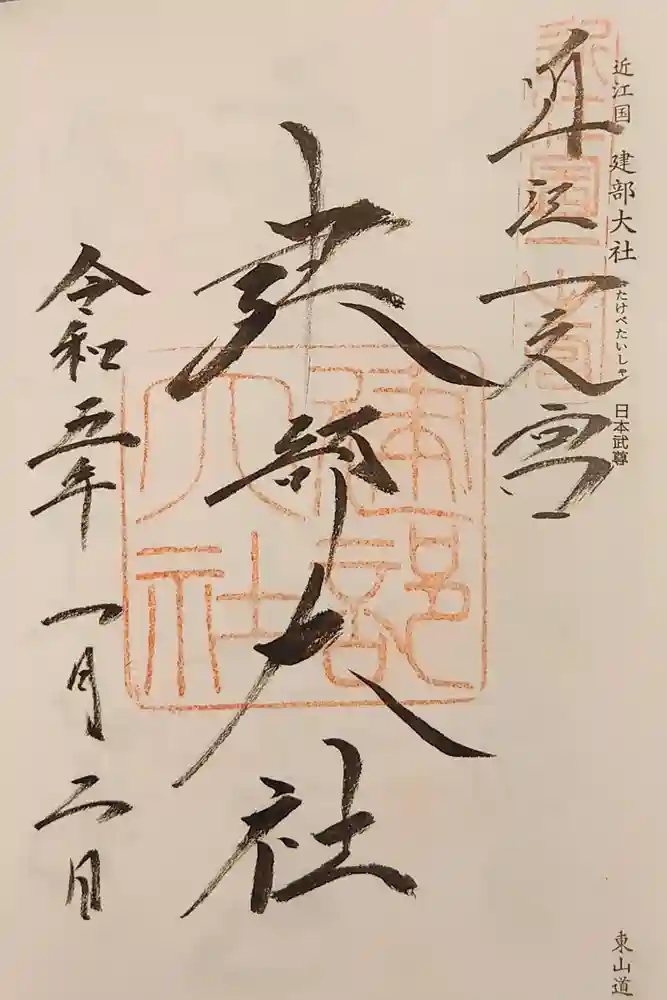 近江国 建部大社 たけべたいしゃ 日本武尊
東山道
近江一之宮
建部大社
建部
大社
令和五年 一月二日